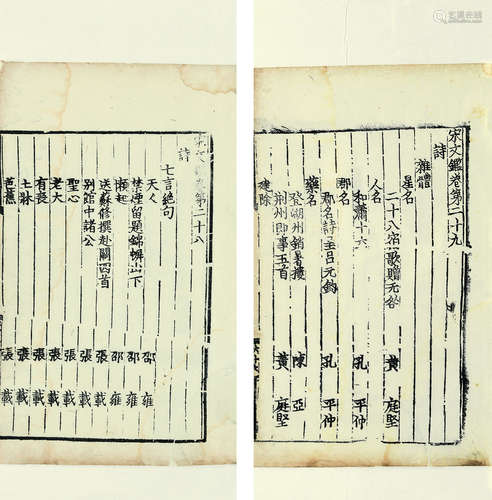 宋文鑑卷第二十九
詩
雜體
星名
二十八宿歌贈无咎 黃庭堅
人名
和蕭十六 孔平仲
郡名
郡名詩呈呂元鈞 孔平仲
藥名
登湖州銷暑樓 陳亞
荆州即事五首 黃庭堅
建除
宋文 卷第二十八
詩
七言絕句
天人 邵雍
禁煙留題錦幈山下 邵雍
起 邵雍
送蘇修撰赴闕四首 張載
別館中諸公 張載
聖心 張載
老大 張載
有喪 張載
土牀 張載
芭蕉 張載